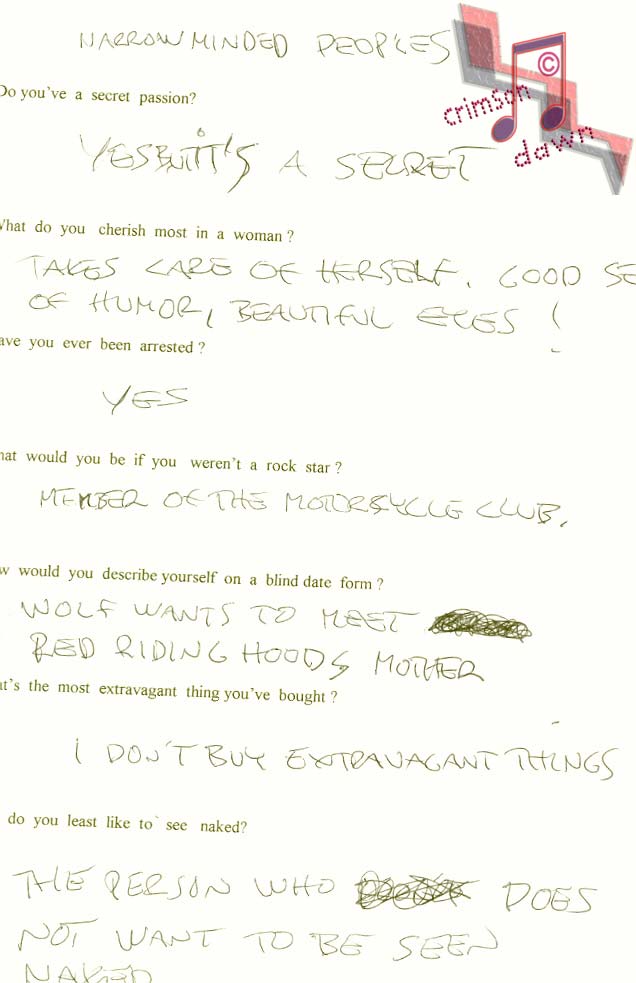 NARROWMINDED PEOPLES
©
crimson
dawn
Do you've a secret passion?
YES BUT IT'S A SECRET
What do you cherish most in a woman ?
TAKES CARE OF HERSELF. GOOD SE
OF HUMOR, BEAUTIFUL EYES !
ave you ever been arrested ?
YES
hat would you be if you weren't a rock star ?
MEMBER OF THE MOTORCYCLE CLUB.
w would you describe yourself on a blind date form ?
WOLF WANTS TO MEET
RED RIDING HOODS MOTHER
at's the most extravagant thing you've bought ?
I DON'T BUY EXTRAVAGANT THINGS
do you least like to see naked?
THE PERSON WHO DOES
NOT WANT TO BE SEEN
NAKED